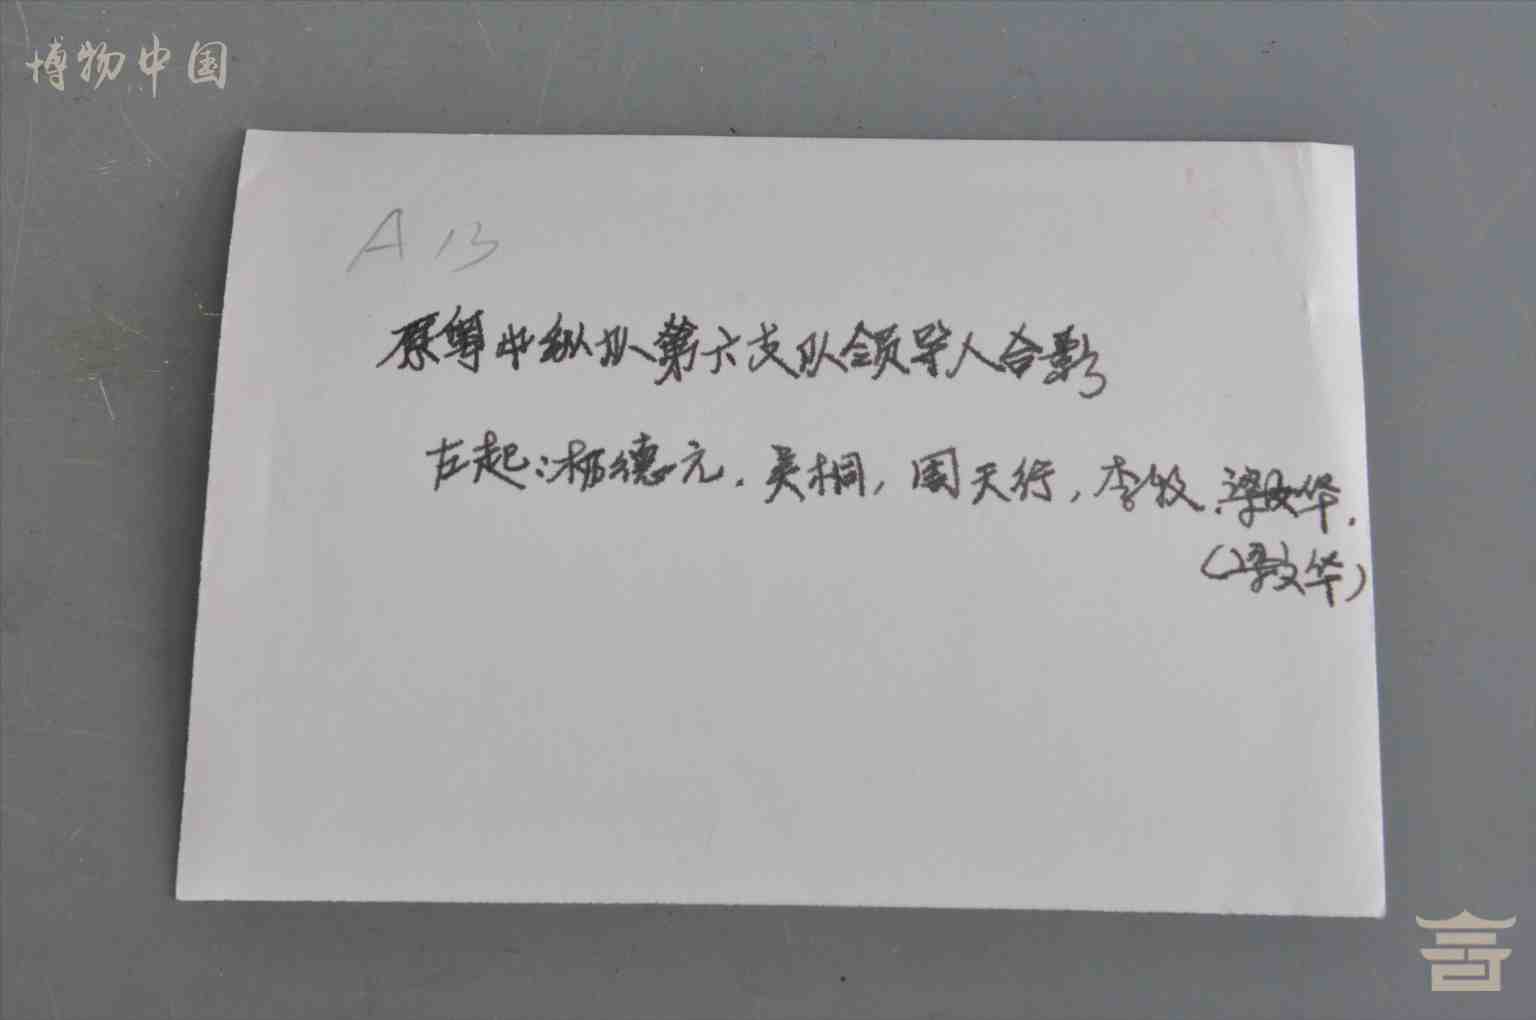 博物中国
A 13
粤中纵队第六支队领导人合影
左起:杨德元.吴桐,周天行,李牧.梁文华.
(梁文华)